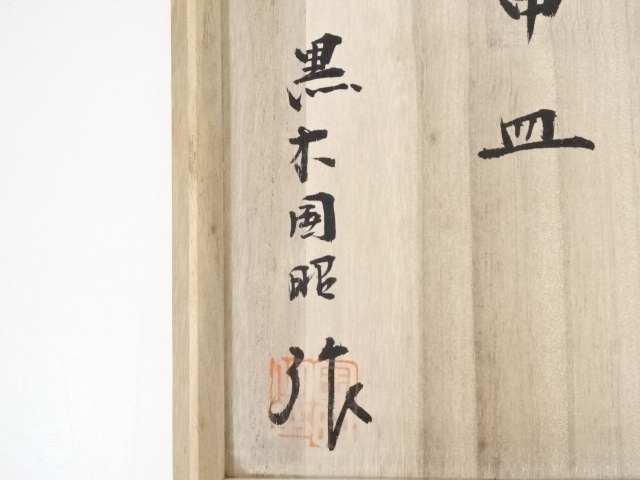 皿
黒木国昭
作